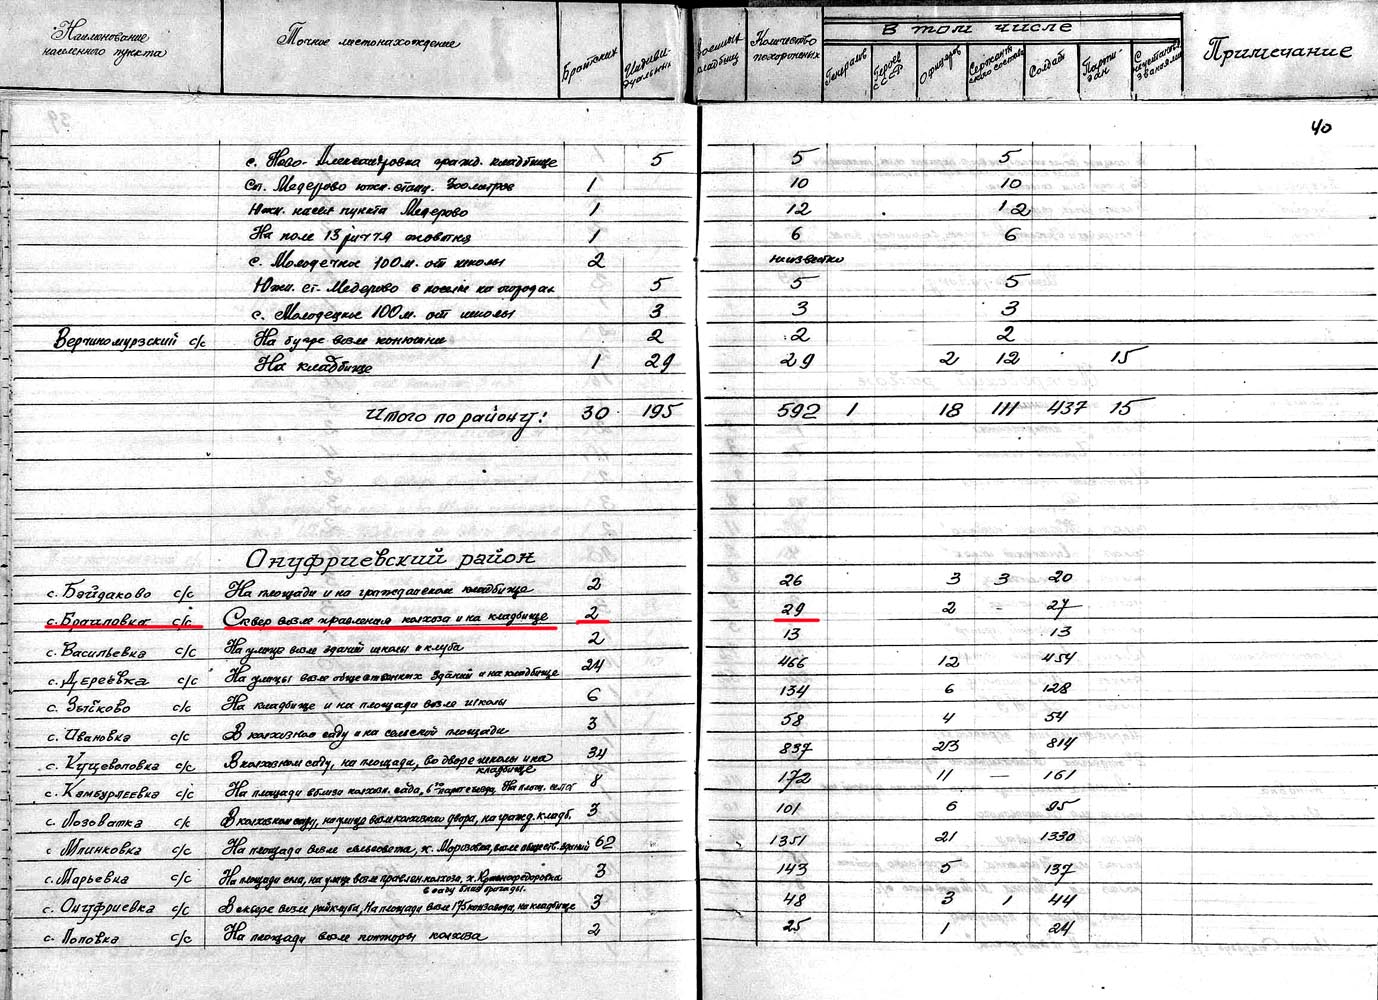 Наименование населенного пункта | Точное местонахождение | Братских | Индивидуальных | Военных кладбищ | Количество похороненых | В том числе | Примечание
Генералов | Героев СССР | Офицеров | Сержантского состава | Солдат | Партизан | С неустановл. званиями
40
с. Ново-Александровка гражд. кладбище 5 5 5
Ст. Медерово южн. станц. 1 10 10
Южн. насел пункта Медерово 1 12 12
На поле 1 6 6
с. Молодецкое 100 м. от школы 2 неизвестно
Южн. ст. Медерово в на огородах 5 5 5
с. Молодецкое 100 м. от школы 3 3 3
с/с На бугре возле конюшни 2 2 2
На кладбище 1 29 29 2 12 15
Итого по району: 30 195 592 1 18 111 437 15
Онуфриевский район
с. Байдаково с/с На площади и на гражданском кладбище 2 26 3 3 20
с. Браиловка с/с Сквер возле правления колхоза и на кладбище 2 29 2 - 27
с. Васильевка с/с На улице возле зданий школы и клуба 2 13 13
с. Дереевка с/с На улицы возле общественных зданий и на кладбище 24 466 12 454
с. Зыбково с/с На кладбище и на площади возле школы 6 134 6 128
с. Ивановка с/с В колхозном саду и на сельской площади 3 58 4 54
с. Куцеволовка с/с В колхозном саду, на площади, во дворе школы и на кладбище 34 837 23 814
с. Камбурлеевка с/с На площади вблизи колхозн. сада, На площ. села 8 172 11 — 161
с. Лозоватка с/с В колхозном саду, на улице возле колхозного двора, на гражд. кладб. 3 101 6 95
с. Млинковка с/с На площади возле сельсовета, х. Морозовка, возле обществ. зданий 62 1351 21 1330
с. Марьевка с/с На площади села, на улице возле правлен. колхоза, х. в саду близ бригады. 3 143 5 137
с. Онуфриевка с/с В сквере возле райклуба, На площади возле 175 конзавода, на кладбище 3 48 3 1 44
с. Поповка с/с На площади возле конторы колхоза 2 25 1 24